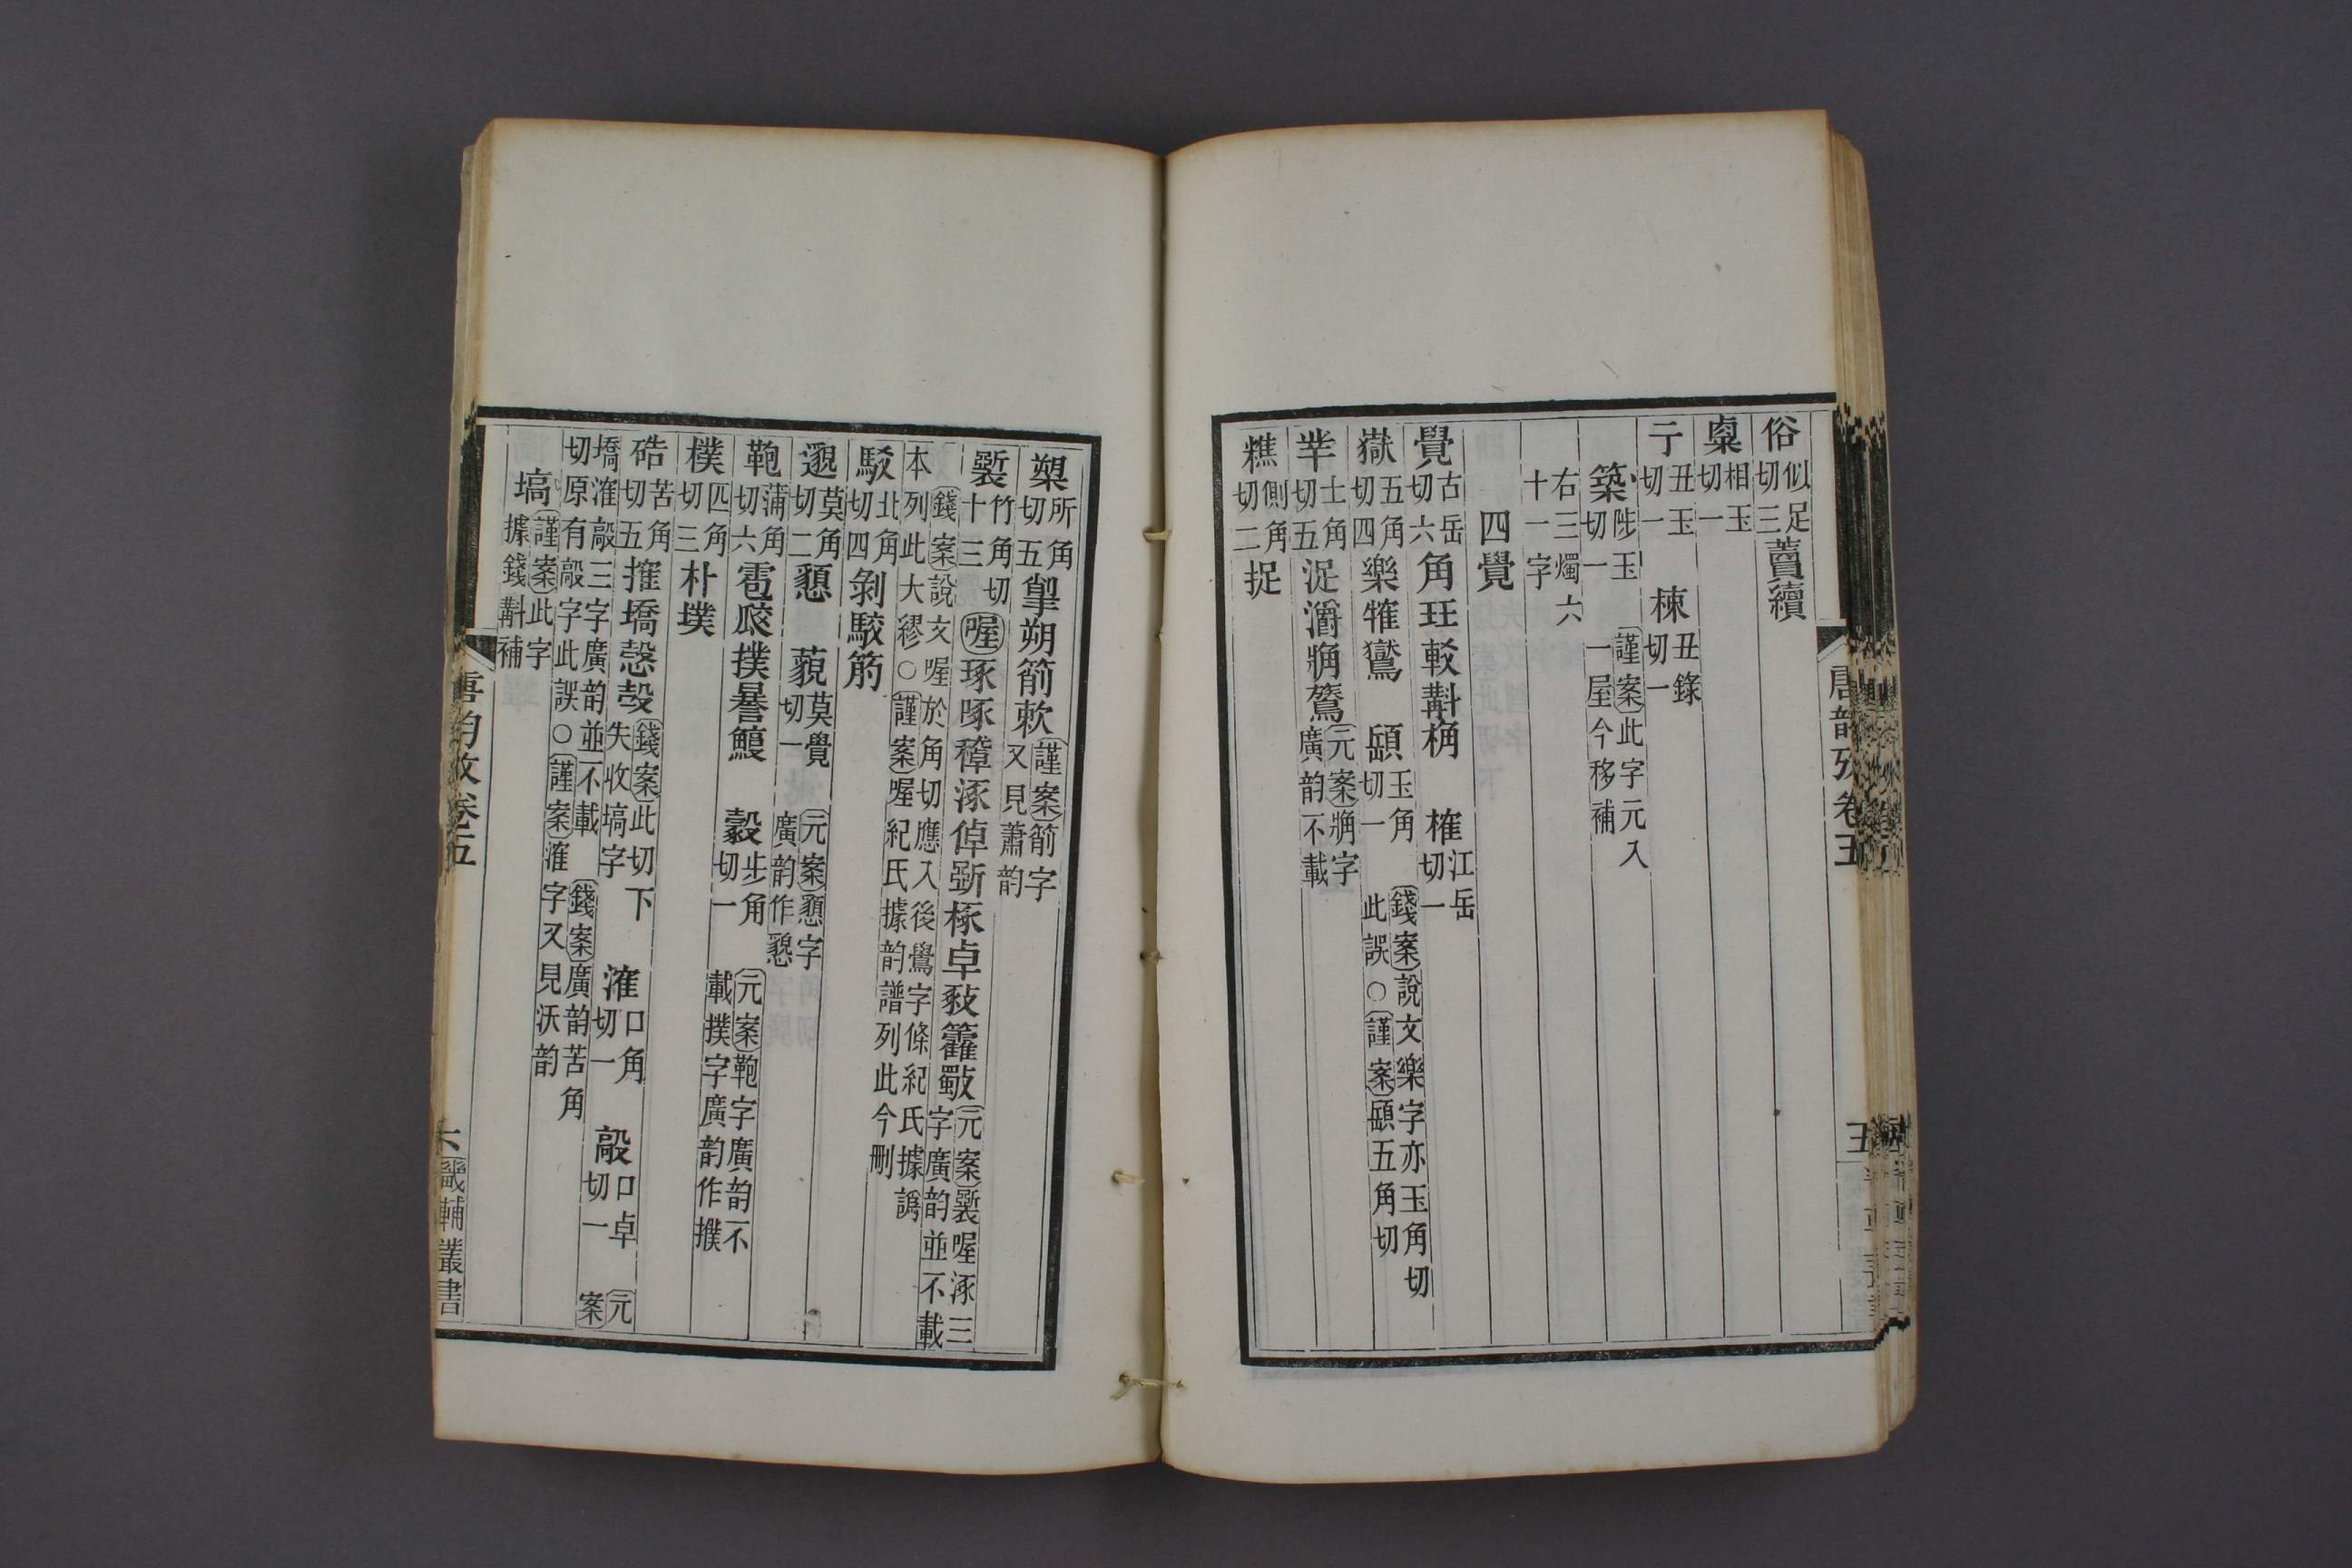 俗似足切三藚續
㮚相玉切一
亍丑玉切一　楝丑錄切一
築陟玉切一　謹案此字元入一屋今移補
右三燭六十一字
四覺
覺古岳切六角珏較斠桷　榷江岳切一
嶽五角切四樂㹊鸑　𩔑玉角切一　錢案說文樂字亦玉角切此誤○謹案𩔑五角切
丵士角切五浞灂㺉鷟元案㺉字廣韵不載
糕側角切二捉
唐韵攷卷五
五
槊所角切五揱朔箾欶謹案箾字又見蕭韵
斲竹角切十三喔琢啄穛涿倬斵椓卓豛籗斀元案斲喔涿三字廣韵並不載
錢案說文喔於角切應入後鷽字條紀氏據譌本列此大繆○謹案喔紀氏據韵譜列此今刪
駁北角切四剝駮筋
邈莫角切二懇　藐莫覺切一　元案懇字廣韵作懇
鞄蒲角切六雹瓝撲㬥鰒　㲉步角切一　元案鞄字廣韵不載撲字廣韵作撲
樸匹角切三朴墣
硞苦角切五搉墧愨㱿錢案此切下失收塙字　㴶口角切一　敲口卓切一　元案
墧㴶敲三字廣韵並不載　錢案廣韵苦角切原有敲字此誤○謹案㴶字又見沃韵
塙謹案此字據錢斠補
唐韵攷卷五
六
畿輔叢書